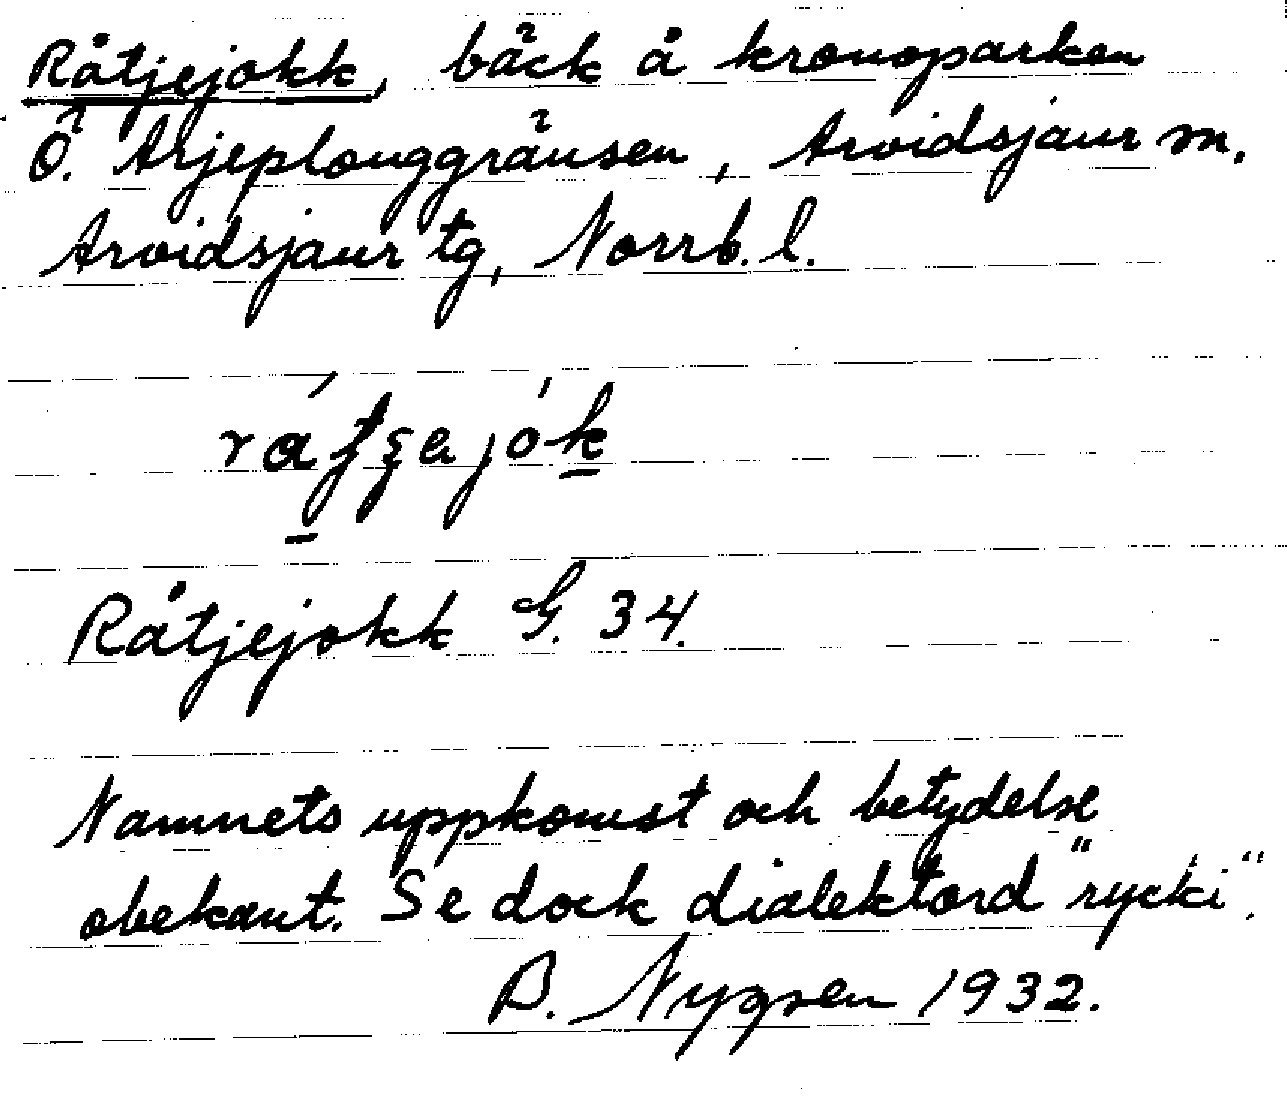 Råtjejokk, bäck å kronoparken
Ö. Arjeplouggränsen, Arvidsjaur sn,
Arvidsjaur tg, Norrb. l.
Råtjejokk G. 34.
Namnets uppkomst och betydelse
obekant. Se dock dialektord "rycki".
B. 1932.